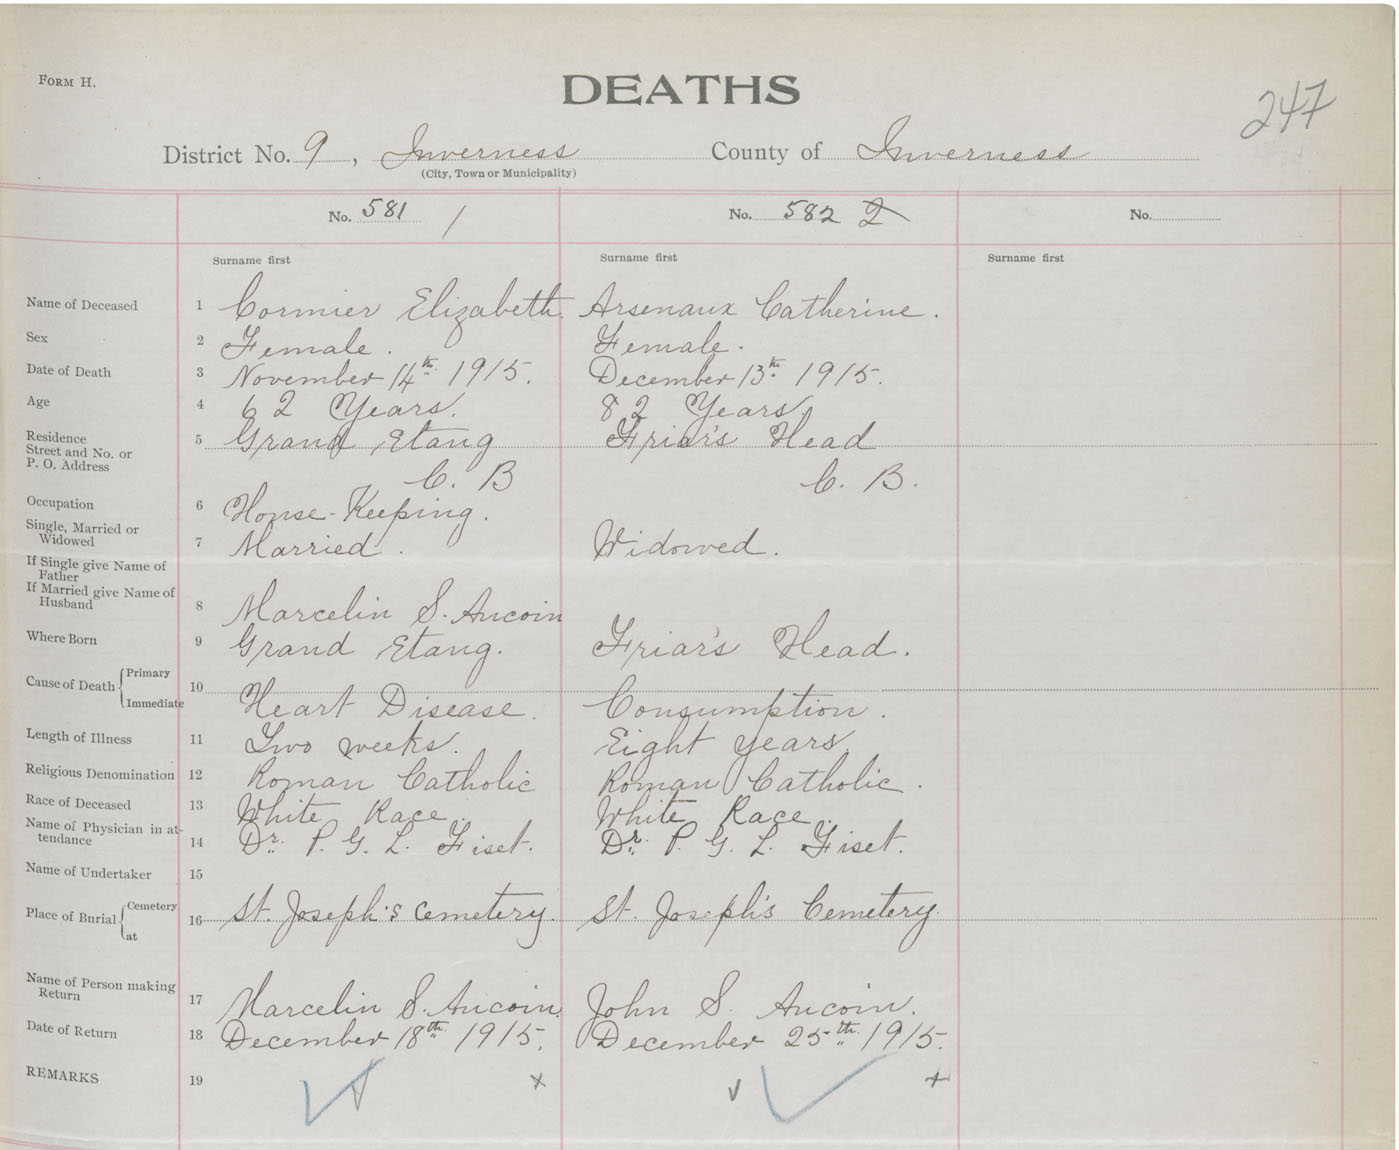 FORM H.
DEATHS
247
District No. 9, Inverness County of Inverness
(City, Town or Municipality)
No. 581 / No. 582 2 No.
Surname first Surname first Surname first
Name of Deceased 1 Cormier Elizabeth. Arsenaux Catherine.
Sex 2 Female. Female.
Date of Death 3 November 14th 1915. December 13th 1915.
Age 4 62 Years. 82 Years.
Residence
Street and No. or
P. O. Address 5 Grand Etang Friar's Head
C. B C. B.
Occupation 6 House-Keeping.
Single, Married or
Widowed 7 Married. Widowed.
If Single give Name of
Father
If Married give Name of
Husband 8 Marcelin S. Aucoin
Where Born 9 Grand Etang. Friar's Head.
Cause of Death { Primary
Immediate 10 Heart Disease. Consumption.
Length of Illness 11 Two weeks. Eight years.
Religious Denomination 12 Roman Catholic Roman Catholic.
Race of Deceased 13 White Race. White Race.
Name of Physician in at-
tendance 14 Dr. P. G. L. Fiset. Dr. P. G. L. Fiset.
Name of Undertaker 15
Place of Burial { Cemetery
at 16 St. Joseph's cemetery. St. Joseph's Cemetery.
Name of Person making
Return 17 Marcelin S. Aucoin. John S. Aucoin.
Date of Return 18 December 18th 1915. December 25th 1915.
REMARKS 19